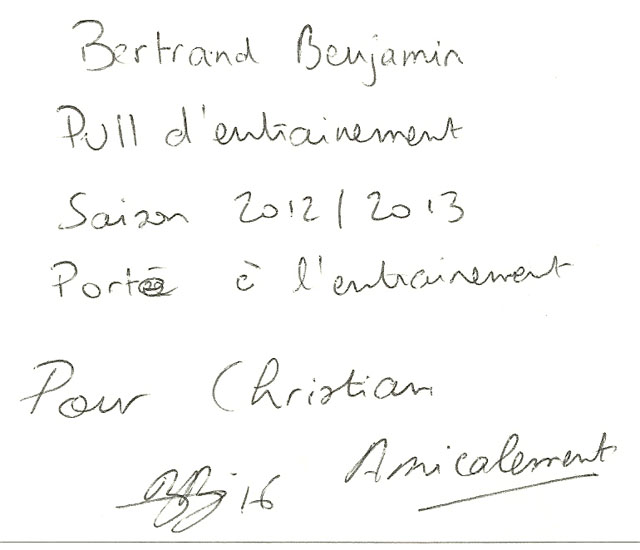 Bertrand Benjamin
Pull d'entrainement
Saison 2012/2013
Porté à l'entrainement
Pour Christian
Amicalement
16